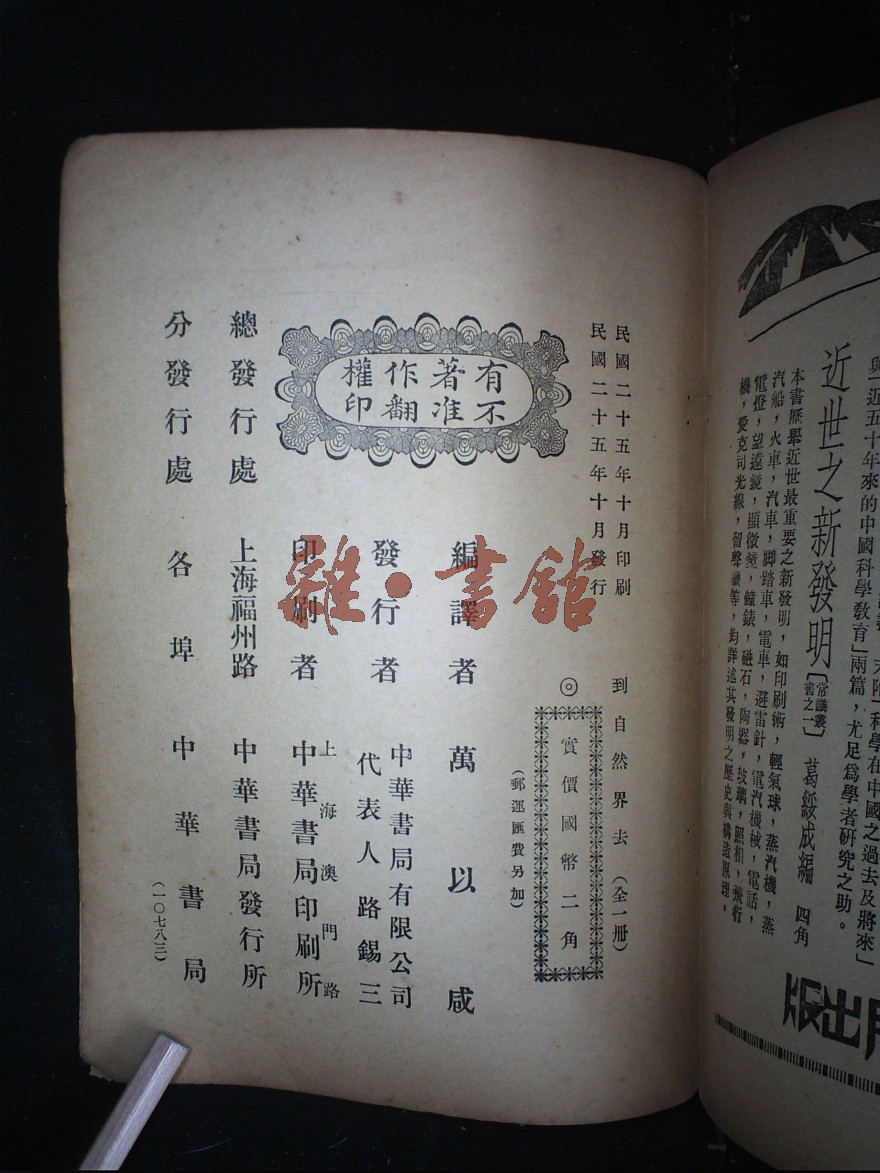 與「近五十年來的中國科學教育」兩篇，尤足爲學者硏究之助。
近世之新發明〔常識叢書之一〕 葛綏成編 四角
本書歷舉近世最重要之新發明，如印刷術，輕氣球，蒸汽機，蒸
汽船，火車，汽車，脚踏車，電車，避雷針，電汽機械，電話，
電燈，望遠鏡，顯微鏡，鐘錶，磁石，陶器，玻璃，照相，飛行
機，愛克司光線，留聲機等，均詳述其發明之歷史與構造原理。
版出
民國二十五年十月印刷
民國二十五年十月發行
到自然界去（全一册）
◎實價國幣二角
（郵運匯費另加）
有不
著准
作翻
權印
編譯者 萬以咸
發行者 中華書局有限公司
代表人路錫三
印刷者 上海澳門路
中華書局印刷所
總發行處 上海福州路 中華書局發行所
分發行處 各埠 中華書局
（一〇七八三）
雜·書館